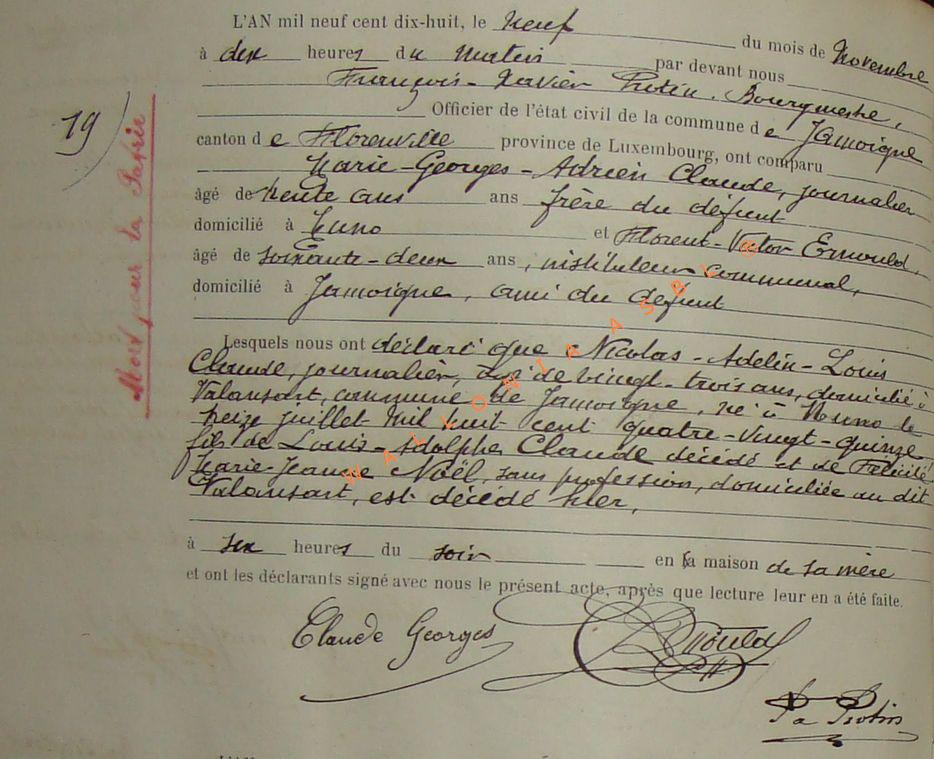 L'AN mil neuf cent dix-huit, le neuf du mois de Novembre
à dix heures du matin par devant nous
François-Xavier Protin, Bourgmestre,
Officier de l'état civil de la commune de Jamoigne
canton de Florenville province de Luxembourg, ont comparu
Marie-Georges-Adrien Claude, journalier
âgé de trente ans ans frère du défunt
domicilié à et Florent-Victor Ernould,
âgé de soixante-deux ans, instituteur communal,
domicilié à Jamoigne, ami du défunt
Lesquels nous ont déclaré que Nicolas-Adelin-Louis
Claude, journalier, âgé de vingt-trois ans, domicilié à
Valansart, commune de Jamoigne, né à le
treize juillet mil huit cent quatre-vingt-quinze
fils de Louis-Adolphe Claude décédé et de Félicité
Marie-Jeanne Noël, sans profession, domiciliée au dit
Valansart, est décédé hier,
à six heures du soir en la maison de sa mère
et ont les déclarants signé avec nous le présent acte, après que lecture leur en a été faite.
Claude Georges
Ernould
Protin
19)
Mort pour la Patrie
WALLONIA ASBL
L'AN